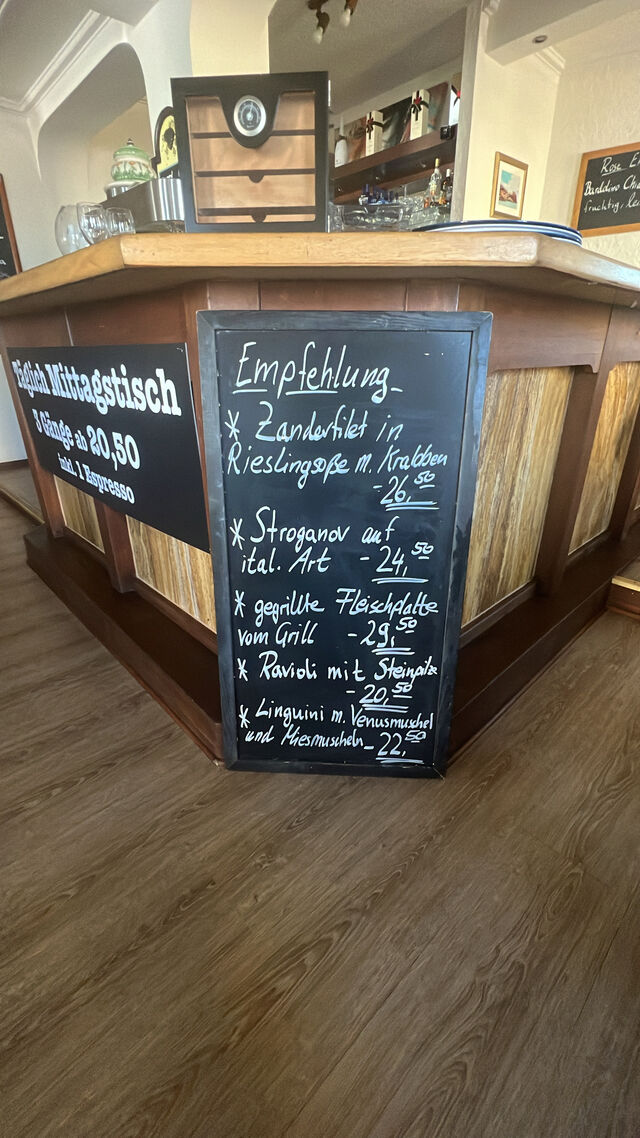 Täglich Mittagstisch
3 Gänge ab 20,50
inkl. 1 Espresso
Empfehlung
* Zanderfilet in
Rieslingsoße m. Krabben
- 26,50
* Stroganov auf
ital. Art - 24,50
* gegrillte Fleischplatte
vom Grill - 29,50
* Ravioli mit Steinpilze
- 20,50
* Linguini m. Venusmuschel
und Miesmuscheln - 22,50
Rose
Bardolino
fruchtig,